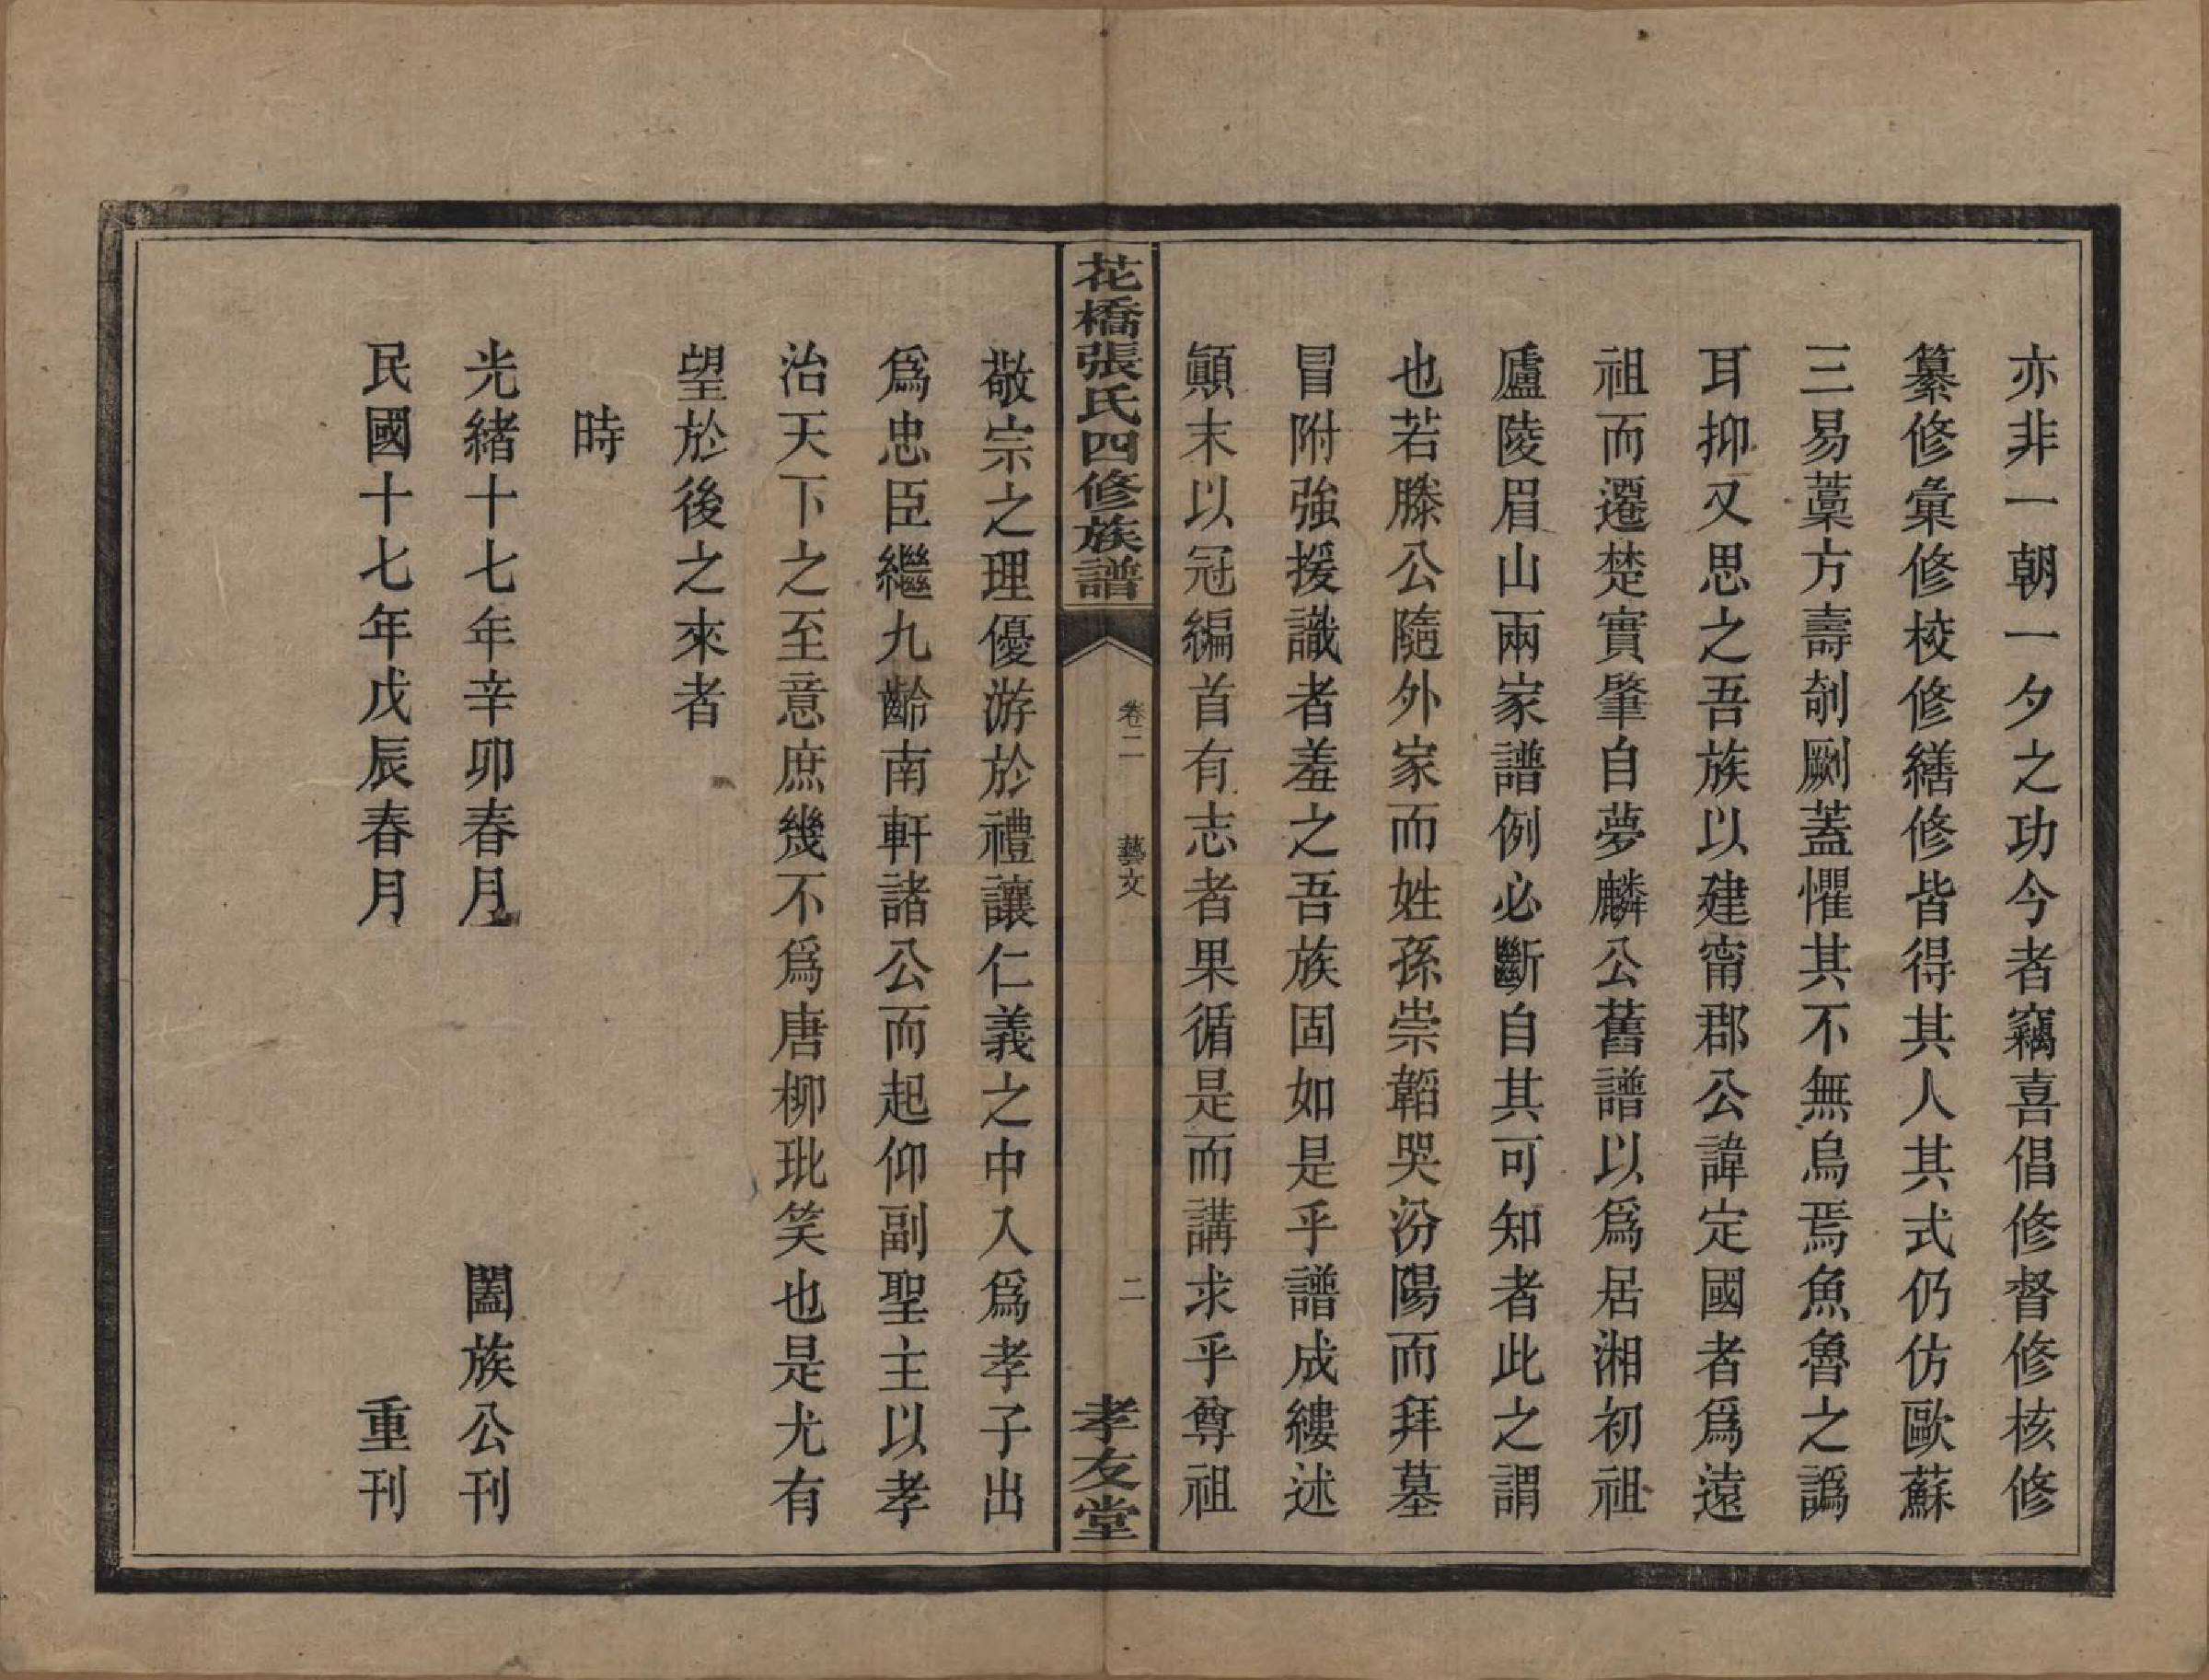 亦非一朝一夕之功今者竊喜倡修督修核修
纂修彙修校修繕修皆得其人其式仍仿歐蘇
三易藁方壽剞劂蓋懼其不無烏焉魚魯之譌
耳抑又思之吾族以建甯郡公諱定國者爲遠
祖而遷楚實肇自夢麟公舊譜以爲居湘初祖
廬陵眉山兩家譜例必斷自其可知者此之謂
也若滕公隨外家而姓孫崇韜哭汾陽而拜墓
冒附強援識者羞之吾族固如是乎譜成縷述
顚末以冠編首有志者果循是而講求乎尊祖
花橋張氏四修族譜
卷二 藝文
二
孝友堂
敬宗之理優游於禮讓仁義之中入爲孝子出
爲忠臣繼九齡南軒諸公而起仰副聖主以孝
治天下之至意庶幾不爲唐柳玭笑也是尤有
望於後之來者
時
光緒十七年辛卯春月 闔族公刊
民國十七年戊辰春月 重刊